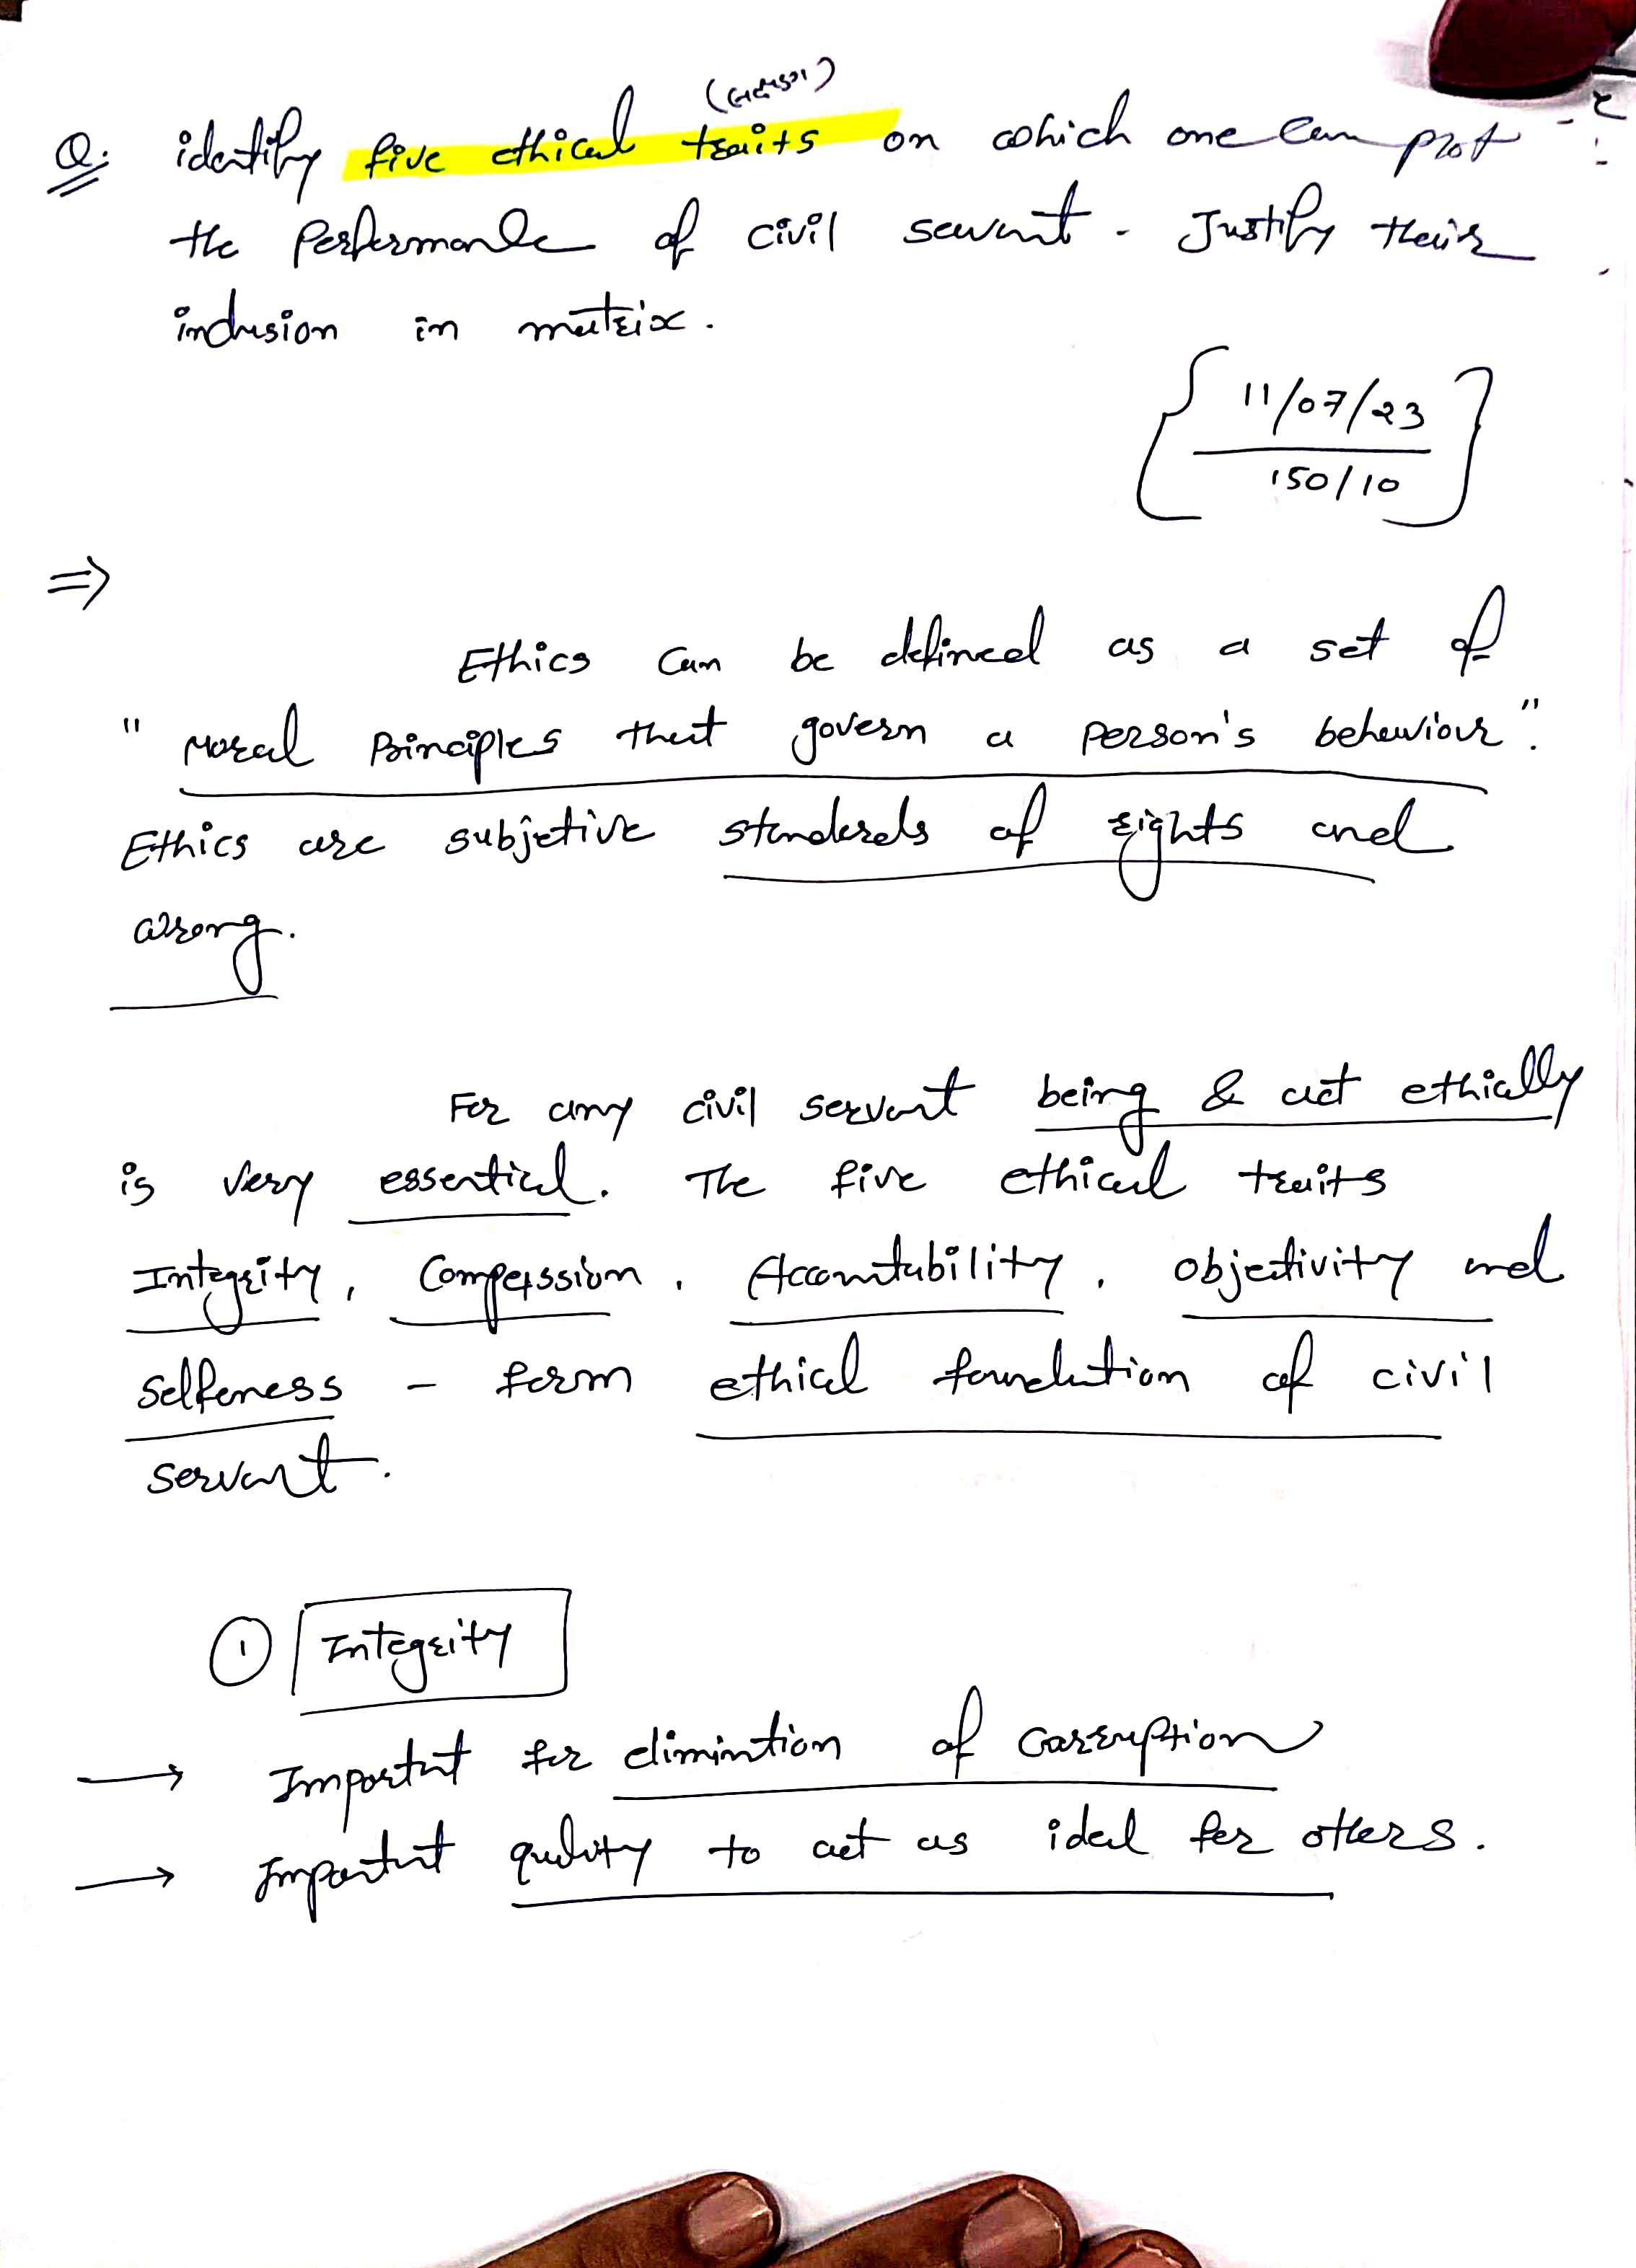 Q: identify five ethical traits on which one can plot
the Performance of civil servant. Justify their
inclusion in matrix.
11/07/23
150/10
⇒
Ethics can be defined as a set of
"Moral Principles that govern a person's behaviour".
Ethics are subjetive standards of rights and
wrong.
For any civil servant being & act ethically
is very essential. The five ethical traits
Integrity, Compassion, Accountability, objectivity and
selfeness - form ethical foundation of civil
servant.
① Integrity
→ Important for elimintion of corruption
→ Important quality to act as ideal for others.